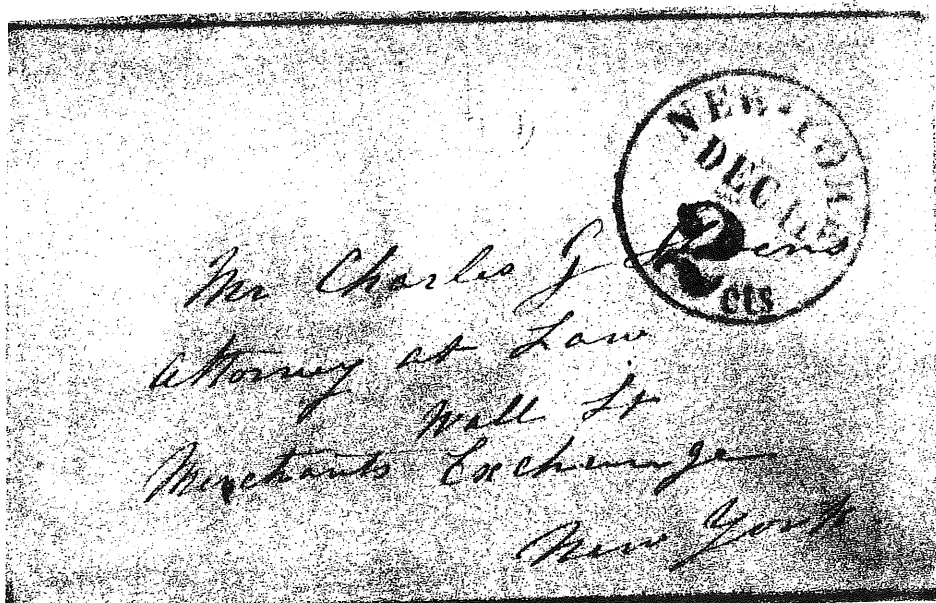 NEW-YORK
DEC
2
cts
Mr Charles J
Attorney at Law
Wall St
Merchants Exchange
New York